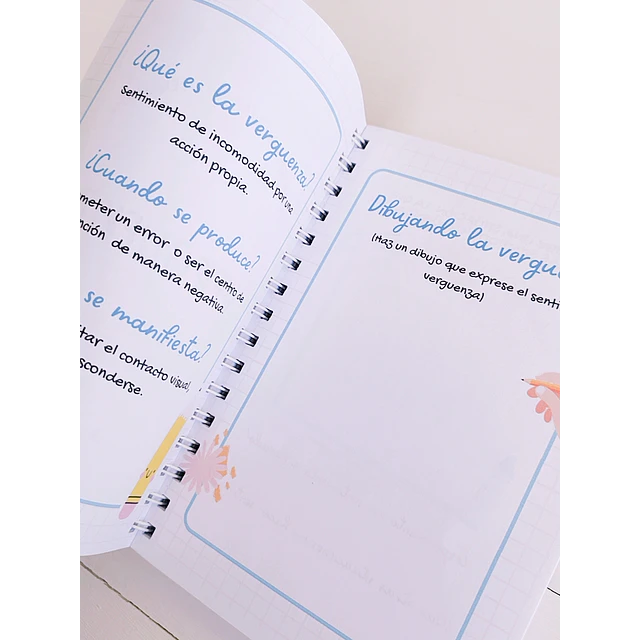 ¿Qué es la verguenza?
Sentimiento de incomodidad por una
acción propia.
¿Cuando se produce?
meter un error o ser el centro de
nción de manera negativa.
se manifiesta?
tar el contacto visual,
sconderse.
Dibujando la vergue
(Haz un dibujo que exprese el senti
verguenza)